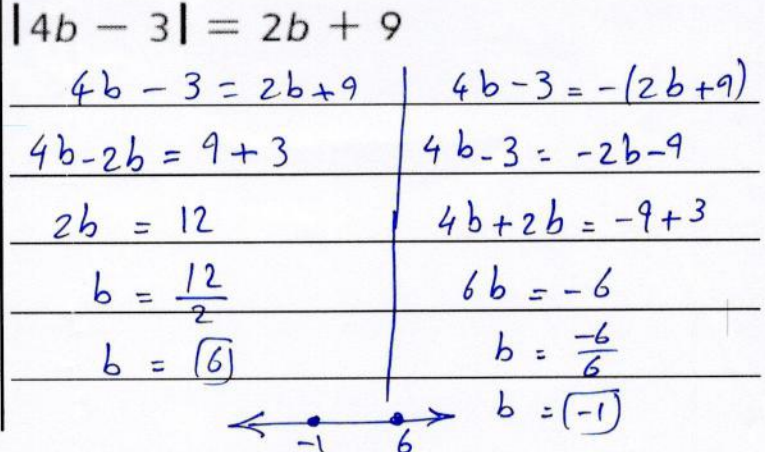 |4b − 3| = 2b + 9
4b - 3 = 2b+9
4b-2b = 9+3
2b = 12
b = 12/2
b = 6
4b-3 = -(2b+9)
4b-3 = -2b-9
4b+2b = -9+3
6b = -6
b = -6/6
b = -1
-1 6